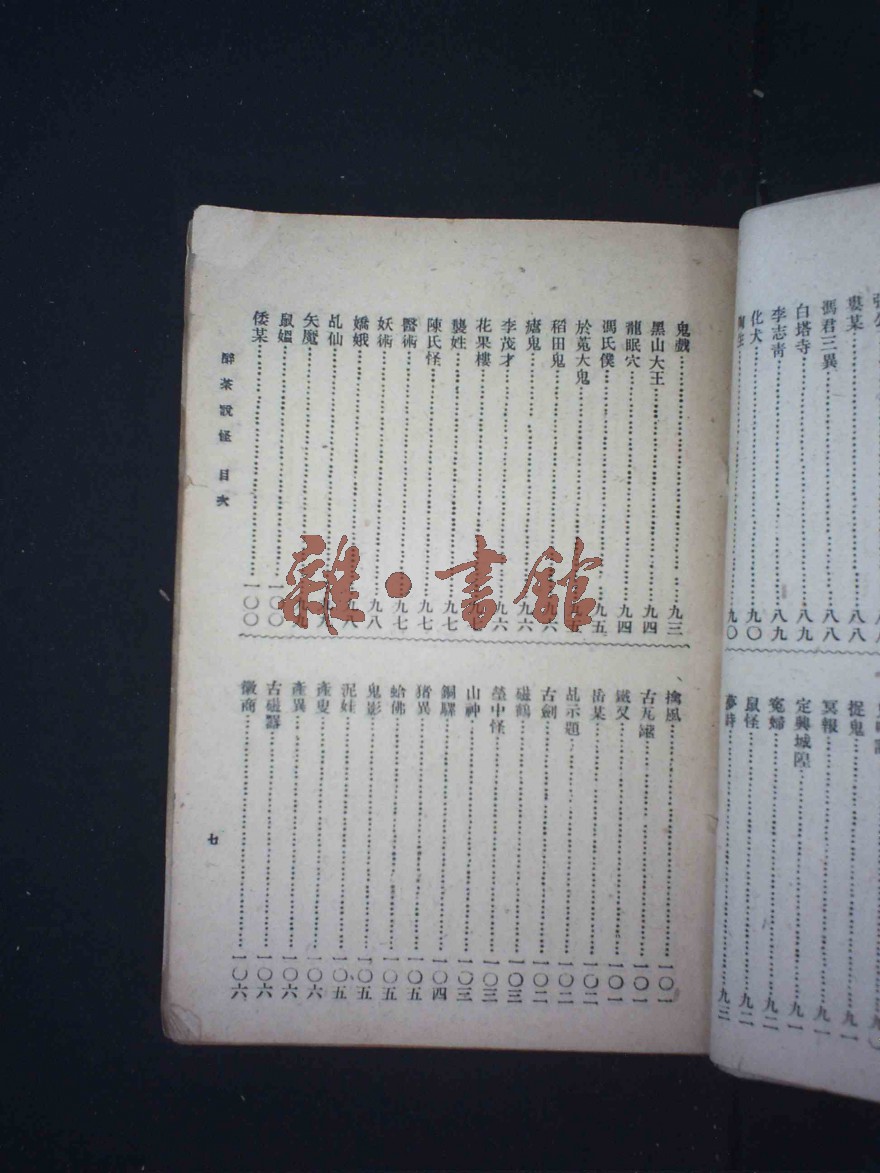 婁某⋯⋯八八
馮君三異⋯⋯八八
白塔寺⋯⋯八九
李志靑⋯⋯八九
化犬⋯⋯九〇
九〇
捉鬼⋯⋯九一
冥報⋯⋯九一
定興城隍⋯⋯九一
寃婦⋯⋯九二
鼠怪⋯⋯九二
夢⋯⋯九三
鬼戲⋯⋯九三
黑山大王⋯⋯九四
龍眠穴⋯⋯九四
馮氏僕⋯⋯九五
於菟大鬼⋯⋯九五
稻田鬼⋯⋯九六
瘧鬼⋯⋯九六
李茂才⋯⋯九六
花果樓⋯⋯九
龑姓⋯⋯九七
陳氏怪⋯⋯九七
醫術⋯⋯九七
妖術⋯⋯九八
嬌娥⋯⋯九八
乩仙⋯⋯九
矢魔⋯⋯九九
鼠媼⋯⋯一〇〇
倭某⋯⋯一〇〇
擒風⋯⋯一〇一
古瓦罐⋯⋯一〇一
鐵叉⋯⋯一〇一
岳某⋯⋯一〇二
乩示題⋯⋯一〇二
古劍⋯⋯一〇二
磁鶴⋯⋯一〇三
塋中怪⋯⋯一〇三
山神⋯⋯一〇三
銅驛⋯⋯一〇四
猪異⋯⋯一〇五
蛤佛⋯⋯一〇五
鬼影⋯⋯一〇五
泥娃⋯⋯一〇五
產叟⋯⋯一〇六
產異⋯⋯一〇六
古磁器⋯⋯一〇六
徽商⋯⋯一〇六
醉茶說怪 目次
七
雜·書館